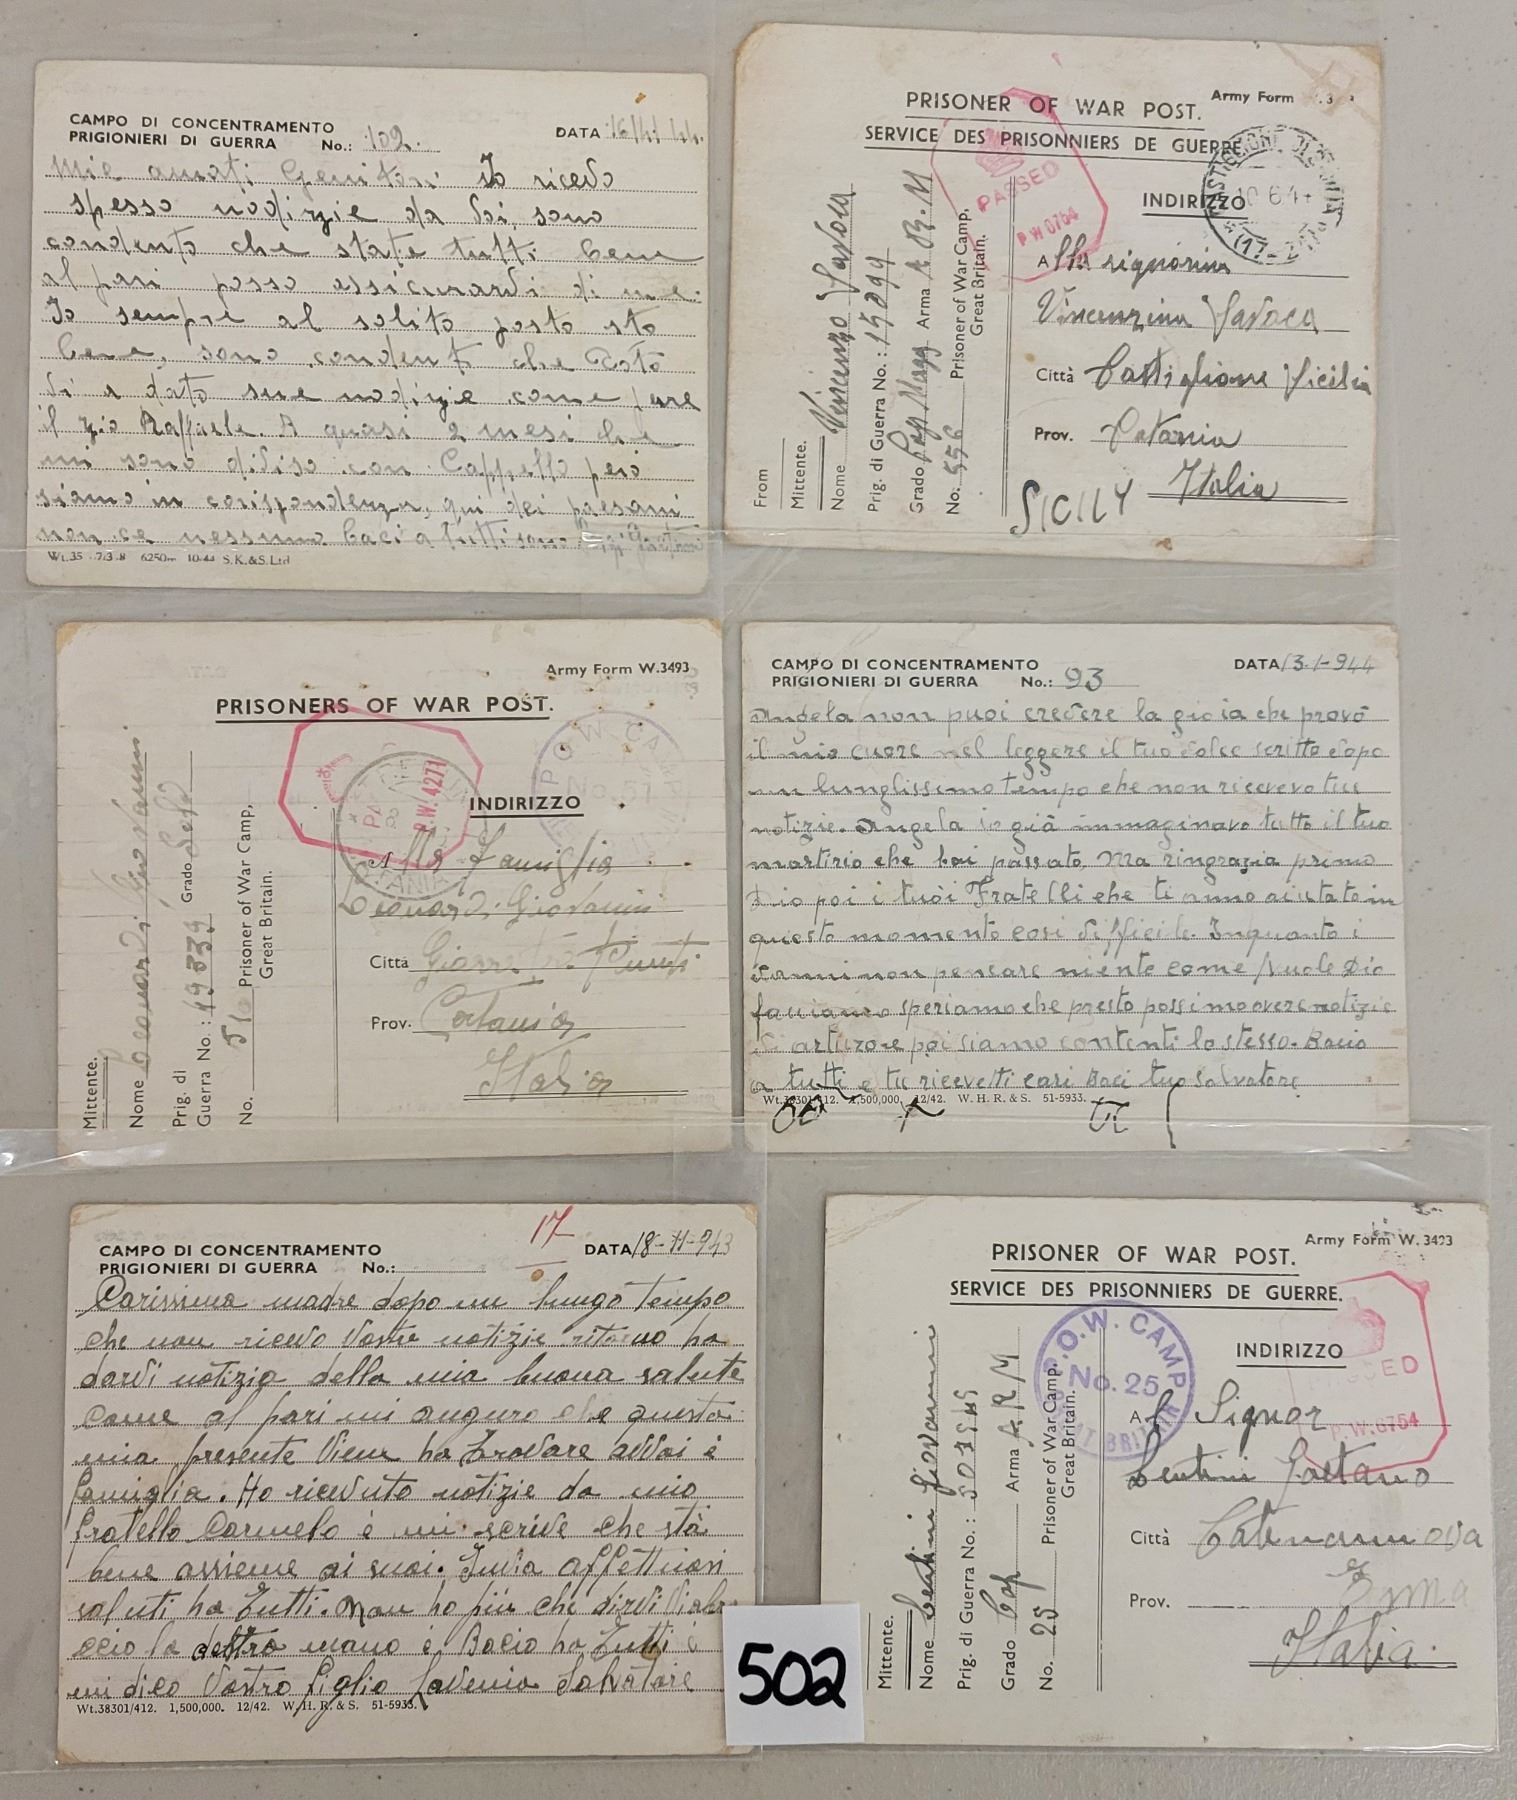 CAMPO DI CONCENTRAMENTO
PRIGIONIERI DI GUERRA No.: 102.
DATA 16/4/44.
Mie amati Genitori Io ricevo
spesso nodizie da Voi, sono
condento che state tutti bene
al pari posso assicurarvi di me.
Io sempre al solito posto sto
bene, sono condenti che
Vi a dato sue nodizie come pure
il zio Raffaele. A quasi 2 mesi che
mi sono diviso con Cappello però
siamo in corispondenza, qui dei paesani
non ce nessuno baci a tutti sono
Wt.35 6250m 10/43 S.K.&S.Ltd
Army Form
PRISONER OF WAR POST.
SERVICE DES PRISONNIERS DE GUERRE.
PASSED
P W 0764
CASTIGLIONE DI SICILIA
INDIRIZZO
Alla signorina
Vincenzina
Città Castiglione Sicilia
Prov. Catania
Italia
SICILY
From
Mittente.
Nome Vincenzo
Prig. di Guerra No.: 15099
Grado Cap Magg Arma A.B.M
No. 556 Prisoner of War Camp,
Great Britain.
Army Form W.3493
PRISONERS OF WAR POST.
P.O.W. CAMP
P.W. 4271
CATANIA
INDIRIZZO
Alla Famiglia
Leonardi Giovanni
Città
Prov. Catania
Italia
Mittente.
Nome Leonardi Giovanni
Prig. di
Guerra No.: 19339 Grado
No. 51 Prisoner of War Camp,
Great Britain.
CAMPO DI CONCENTRAMENTO
PRIGIONIERI DI GUERRA No.: 93
DATA 13-1-944
Angela non puoi credere la gioia che provò
il mio cuore nel leggere il tuo dolce scritto dopo
un lunglissimo tempo che non ricevevo tue
notizie. Angela io già immaginavo tutto il tuo
martirio che hai passato, Ma ringrazia primo
Dio poi i tuoi Fratelli che ti anno aiutato in
questo momento cosi difficile. Inquanto i
danni non pensare niente come Vuole Dio
facciamo speriamo che presto possimo avere notizie
di arturore poi siamo contenti lo stesso. Bacio
a tutti e tu riceveti cari Baci tuo Salvatore
Wt.38301/412. 1,500,000. 12/42. W. H. R. & S. 51-5933.
17
CAMPO DI CONCENTRAMENTO
PRIGIONIERI DI GUERRA No.:
DATA 18-11-943
Carissima madre dopo un lungo tempo
che non ricevo vostre notizie ritorno ha
darvi notizia della mia buona salute
come al pari mi auguro che questa
mia presente Viene ha trovare avvoi è
famiglia. Ho ricevuto notizie da mio
fratello Carmelo è mi scrive che stà
bene assieme ai suoi. Invia affettuosi
saluti ha tutti. Non ho più che dirvi Viabra
ccio la deStra mano è Bacio ha tutti è
mi dico Vostro figlio Lavenia Salvatore
Wt.38301/412. 1,500,000. 12/42. W. H. R. & S. 51-5933.
502
Army Form W. 3493
PRISONER OF WAR POST.
SERVICE DES PRISONNIERS DE GUERRE.
P.O.W. CAMP
No. 25
GREAT BRITAIN
PASSED
P.W.0764
INDIRIZZO
Al Signor
Lentini Gaetano
Città Catenanuova
Prov. Enna
Italia.
Mittente.
Nome Lentini Giovanni
Prig. di Guerra No.:
Grado Cap Arma A R M
No. 25 Prisoner of War Camp,
Great Britain.